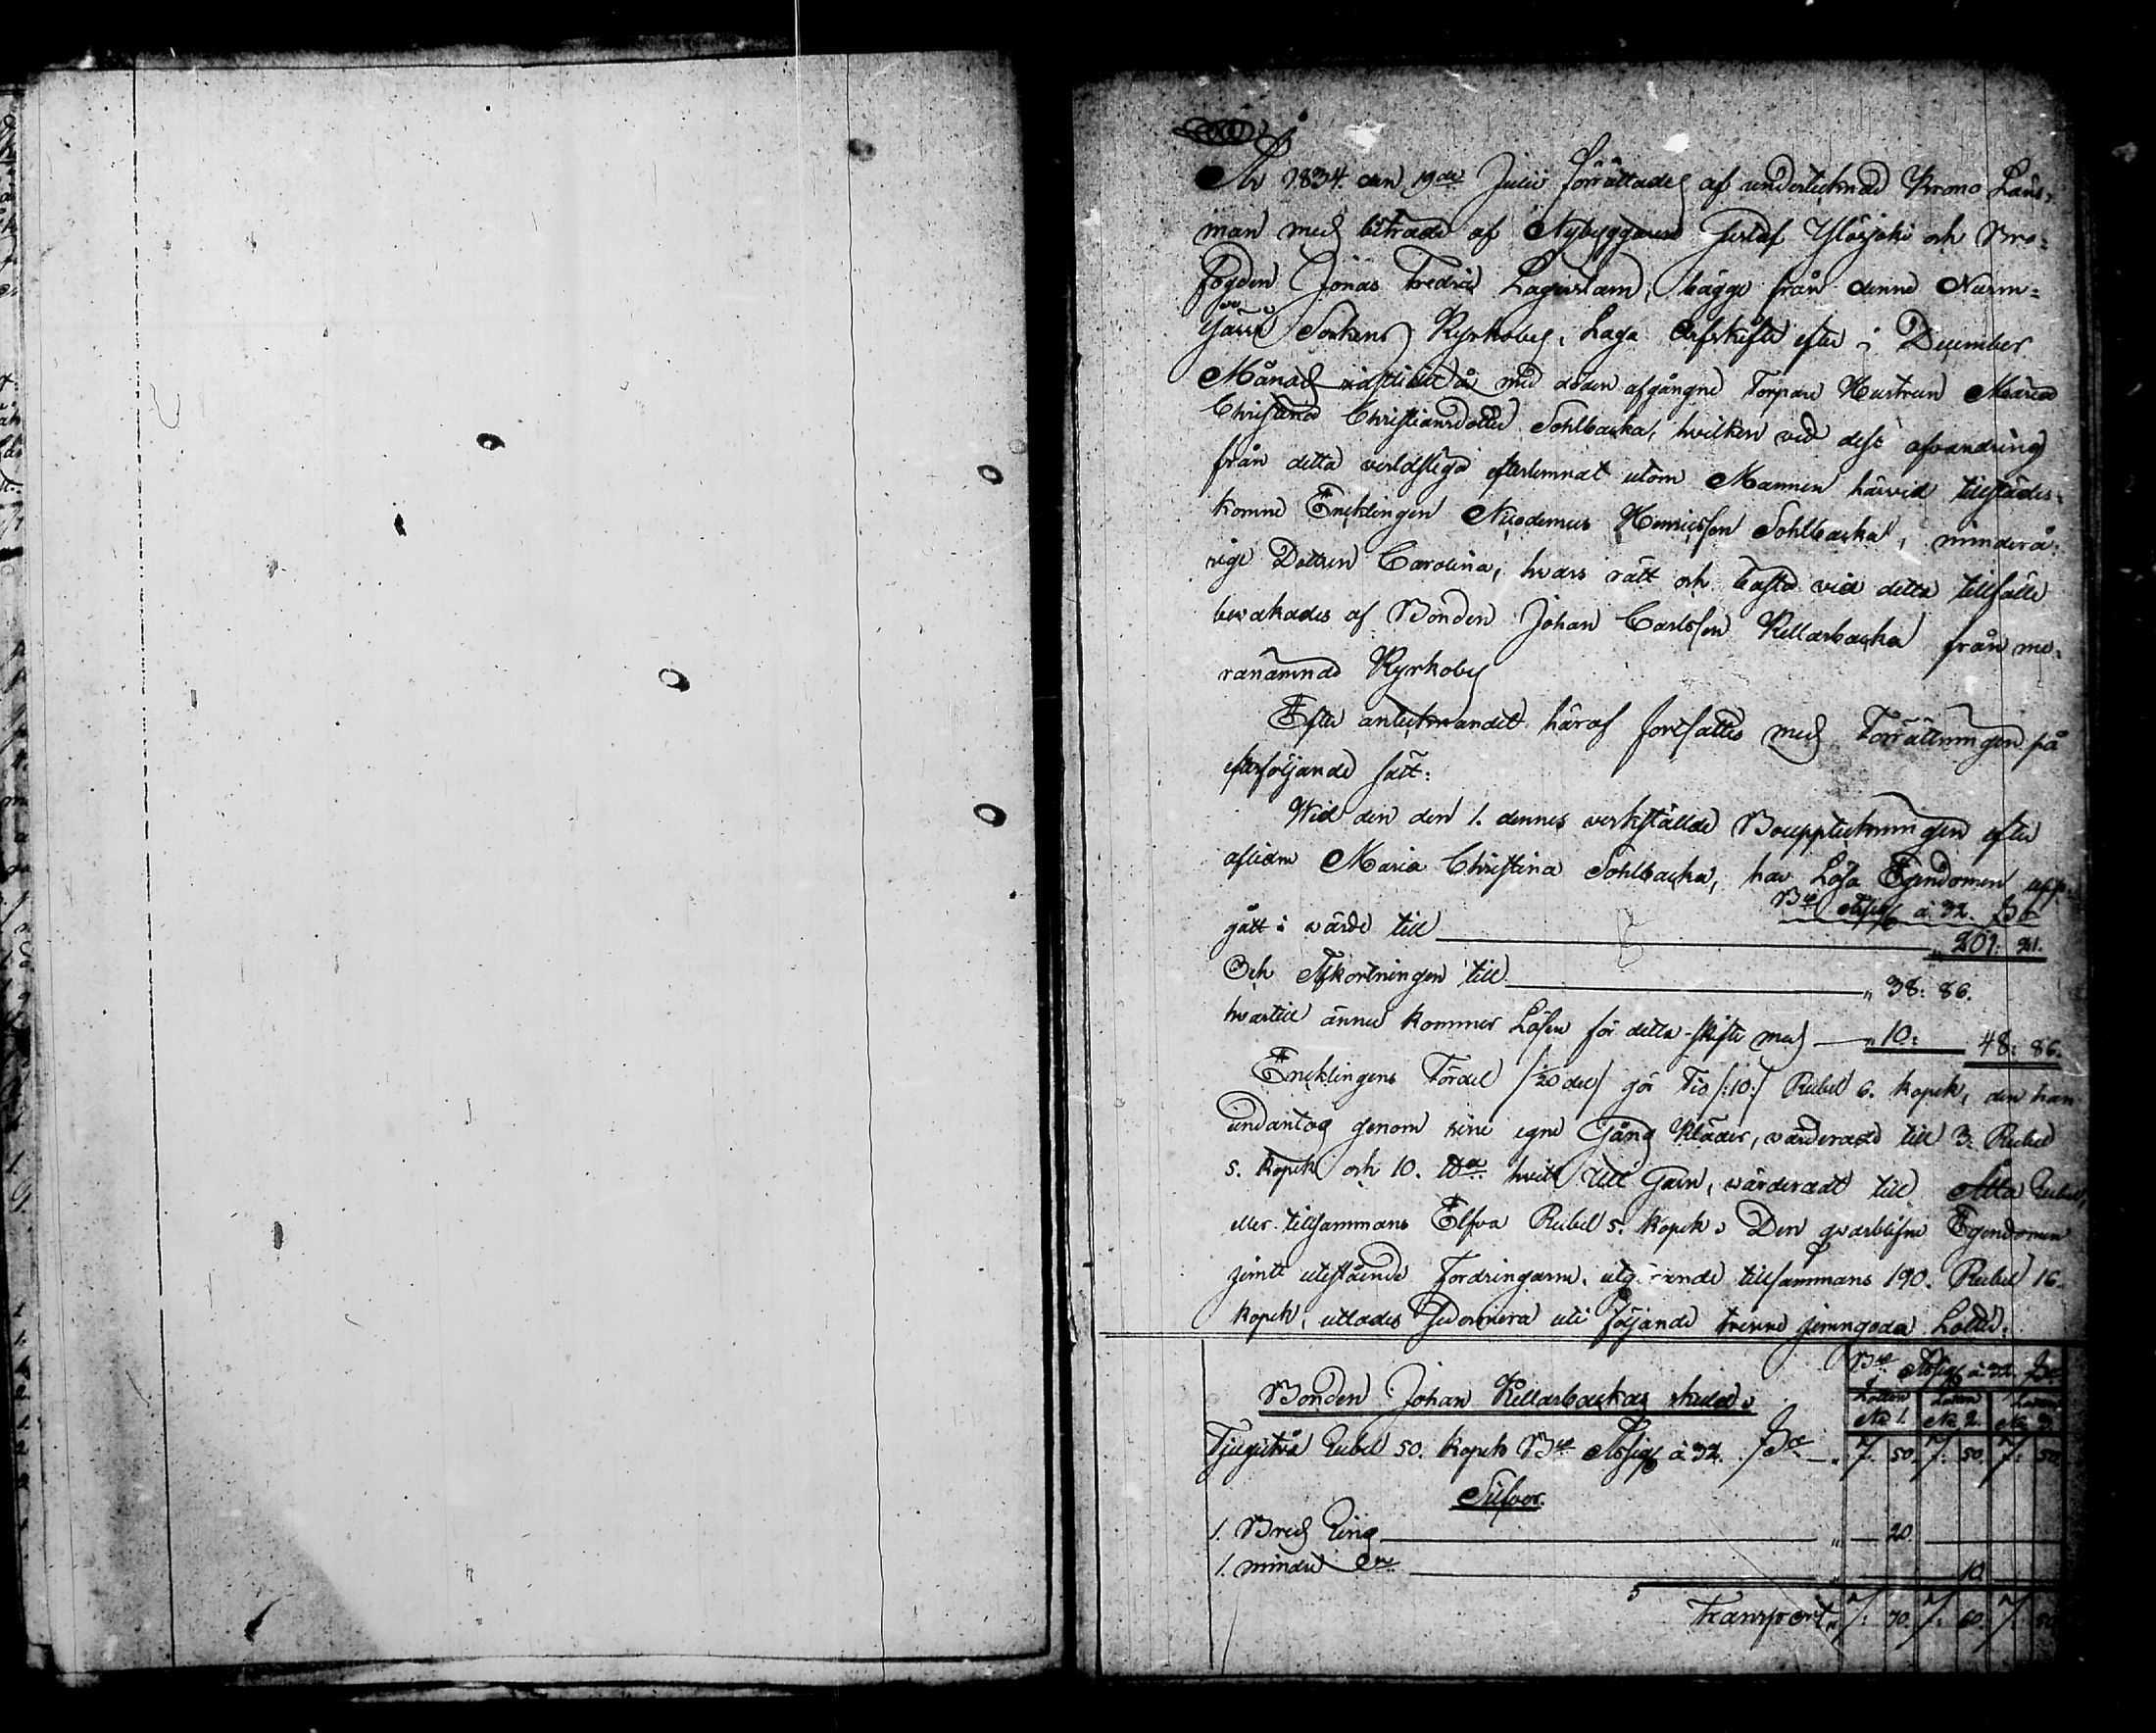 År 1834 den 19de Julii förrättades af undertecknad Krono Läns-
man med biträde af Nybyggaren Gustaf Ylösjoki och Bro-
fogden Jonas Fredric Lagerstam, bägge från denne Nurmo-
järvi Sockens Kyrkoby, Laga Arfskifte efter i December
Månad sidstledit år med döden afgångne Torpare Hustrun Maria
Christina Christiansdotter Sohlbacka, hvilken vid dess afvandring
från detta verldsliga efterlemnat utom Mannen härvid tillstädes-
komne Encklingen Nicodemus Henricsson Sohlbacka, minderå-
rige Dottren Carolina, hvars rätt och bästa vid detta tillfälle
bevakades af Bonden Johan Carlsson Kellarbacka från me-
ranämnde Kyrkoby
Efter antecknandet häraf fortsattes med Förrättningen på
efterföljande sätt:
Wid den den 1. dennes verkställde Bouppteckningen efter
aflidne Maria Christina Sohlbacka, har Lösa Egendomen upp-
Bco Assign à 32. Bco
gått i värde till " 201: 21.
Och Afkortningen till " 38: 86.
hvartill ännu kommer Lösen för detta skifte med " 10: 48: 86.
Encklingens Fördel /20 del/ gör Tio /:10:/ Rubel 6. kopek, den han
undantog genom sine egne Gång Kläder, värderade till 3. Rubel
5. kopek och 10. ℔ hvitt Ull Garn, värderadt till Åtta Rubel,
eller tillsammans Elfva Rubel 5. kopek. Den qvarblifne Egendomen
jemte utestående Fordringarne, utgörande tillsammans 190. Rubel 16.
kopek, utlades uti följande trenne jemngoda Lotter:
Bco Assign à 32. Bco
Lotten No 1. Lotten No 2. Lotten No 3.
Bonden Johan Kellarbackas skuld.
Tjugutvå Rubel 50. kopek Bco Assign à 32. Bco " 7. 50. 7: 50. 7: 50.
Silfver.
1. Bred Ring " 20.
1. mindre Do " 10
Transport " 7: 70. 7: 60. 7: 50